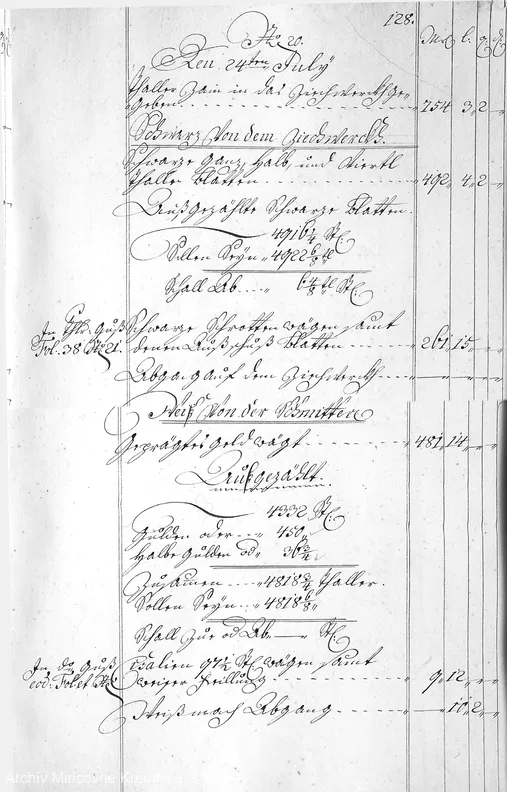 128.
No. 20.
Den 24ten July
Thaller Zain in das Ziechwerckh ge=
geben 254 3 2
Schwarz Von dem Ziechwerckh.
Schwarze Ganz, Halb, und Viertl
Thaller Blatten 492 4 2
Außgezählte Schwarze Blatten.
Sollen Seyn 4922 6/8tl
Schall Ab 6 4/8tl St.
In Guß Schwarze Schrotten wägen samt
Fol. 38 No 21. denen Außschuß Blatten 261 15
Abgang auf dem Ziechwerckh
Weiß Von der Schmitten
Geprägtes Geld wägt 481 14
Außgezählt.
4332 St.
Gulden oder 450
Halbe Gulden od 36 3/4
Zusamen 4818 3/4 Thaller.
Sollen Seyn 4818 6/8
Schall Zue od Ab St.
In Guß 97 1/2 St. wägen samt
eod. Fol. et weiser 9 12
Weißmach Abgang 10 2
Archiv Mincovne Kremnica